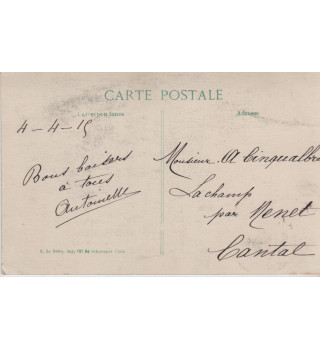 CARTE POSTALE
Correspondance
Adresse
4 - 4 - 15
Bons baisers
à tous
Antoinette
Monsieur A Cinqualbre
Lachamp
par Menet
Cantal